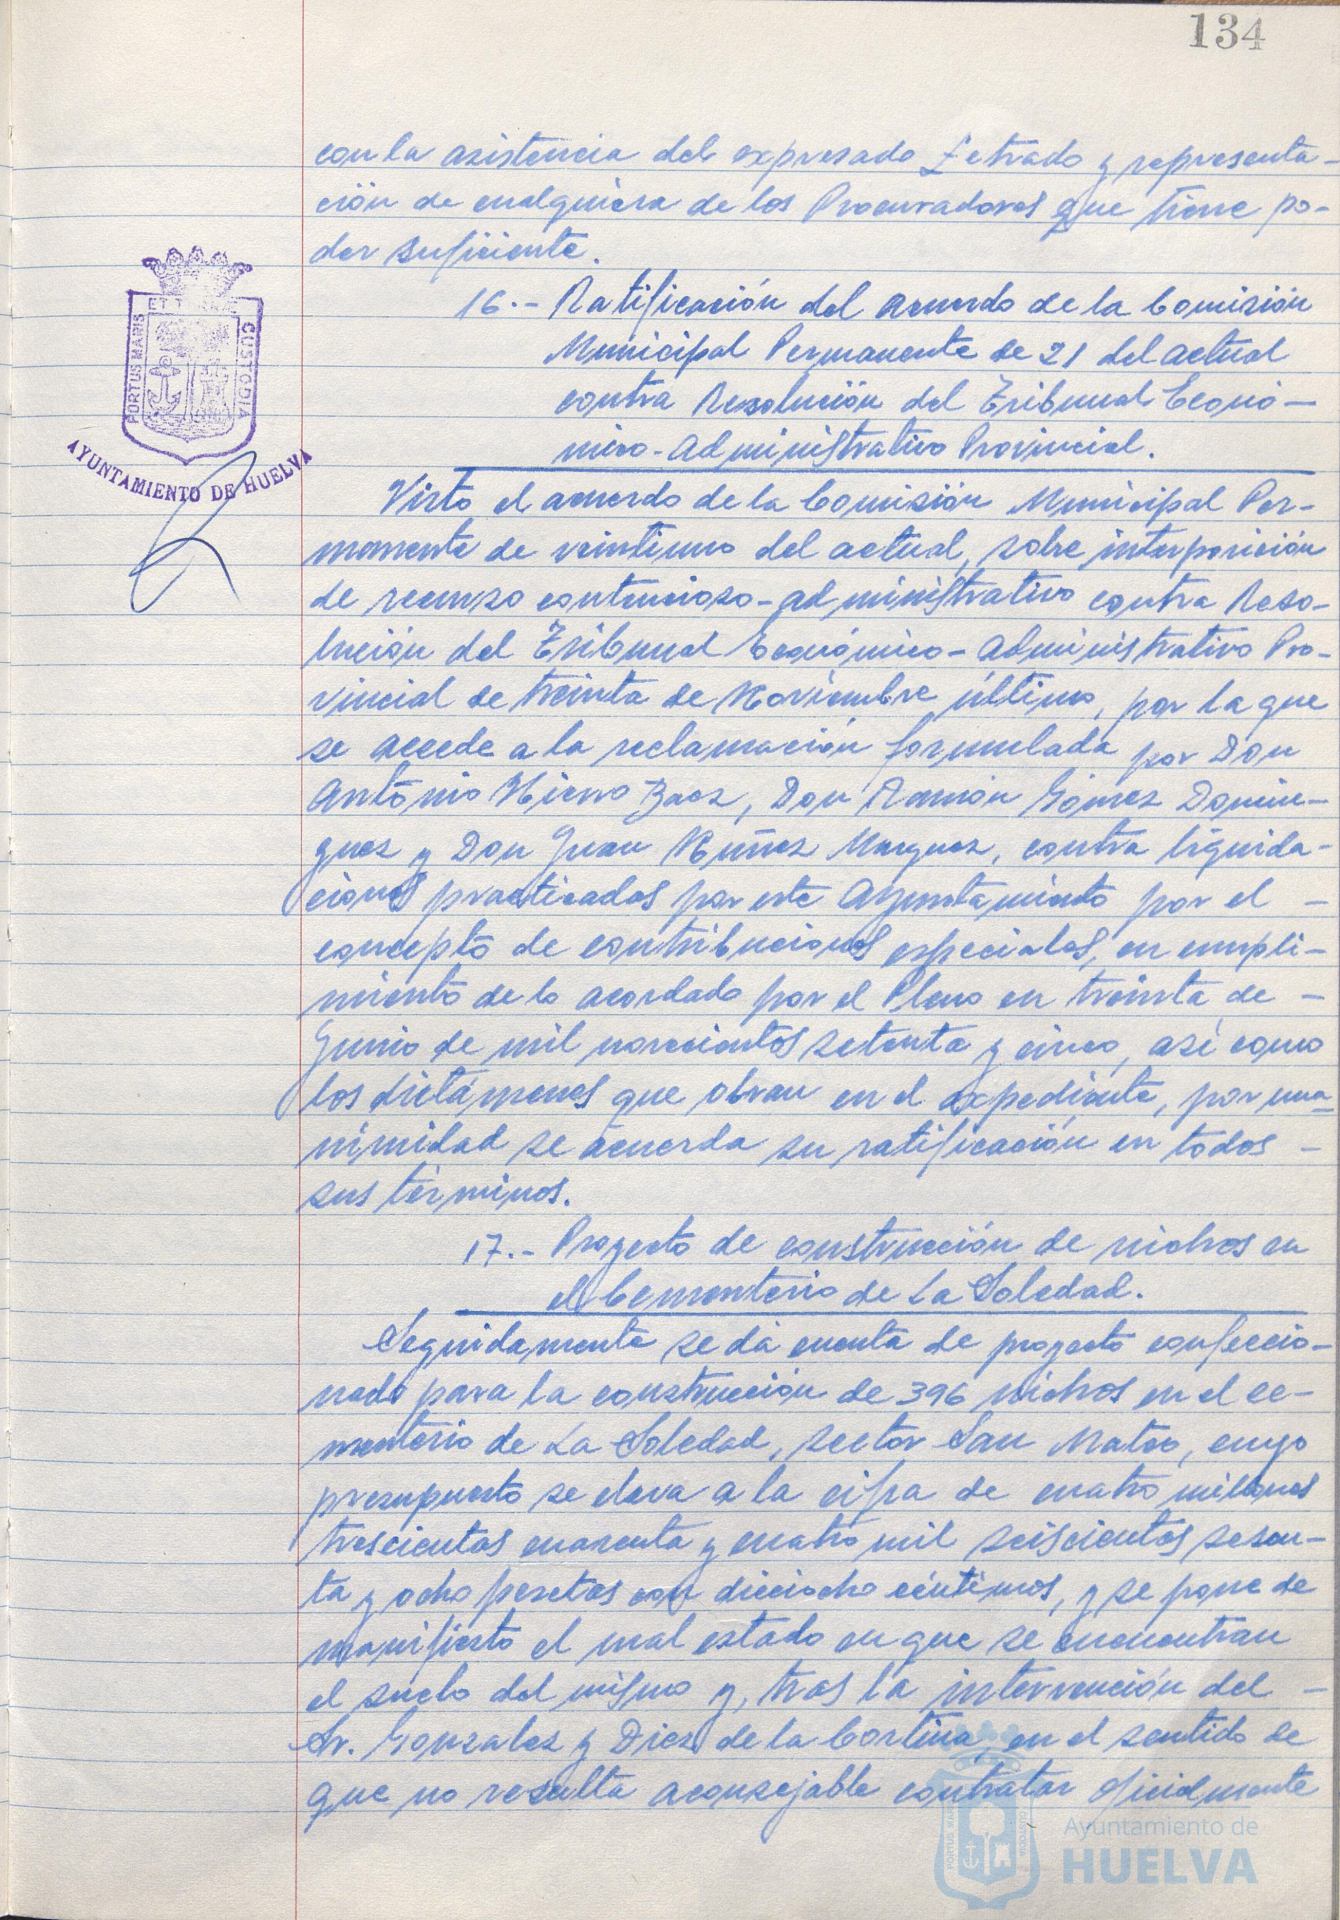 134
con la asistencia del expresado Letrado y representa-
ción de cualquiera de los Procuradores que tiene po-
der suficiente.
16.- Ratificación del acuerdo de la Comisión
Municipal Permanente de 21 del actual
contra Resolución del Tribunal Econó-
mico-Administrativo Provincial.
PORTUS MARIS ET TERRAE CUSTODIA
AYUNTAMIENTO DE HUELVA
Visto el acuerdo de la Comisión Municipal Per-
manente de veintiuno del actual, sobre interposición
de recurso contencioso-administrativo contra Reso-
lución del Tribunal Económico-Administrativo Pro-
vincial de treinta de Noviembre último, por la que
se accede a la reclamación formulada por Don
Antonio Hierro Baez, Don Ramón Gómez Domin-
guez y Don Juan Nuñez Marquez, contra liquida-
ciones practicadas por este Ayuntamiento por el -
concepto de contribuciones especiales, en cumpli-
miento de lo acordado por el Pleno en treinta de -
Junio de mil novecientos setenta y cinco, así como
los dictámenes que obran en el expediente, por una-
nimidad se acuerda su ratificación en todos -
sus términos.
17.- Proyecto de construcción de nichos en
el Cementerio de La Soledad.
Seguidamente se dá cuenta de proyecto confeccio-
nado para la construcción de 396 nichos en el ce-
menterio de La Soledad, sector San Mateo, cuyo
presupuesto se eleva a la cifra de cuatro millones
trescientas cuarenta y cuatro mil seiscientas sesen-
ta y ocho pesetas con dieciocho céntimos, y se pone de
manifiesto el mal estado en que se encuentran
el suelo del mismo y, tras la intervención del -
Sr. Gonzalez y Diez de la Cortina, en el sentido de
que no resulta aconsejable contratar oficialmente
Ayuntamiento de
HUELVA